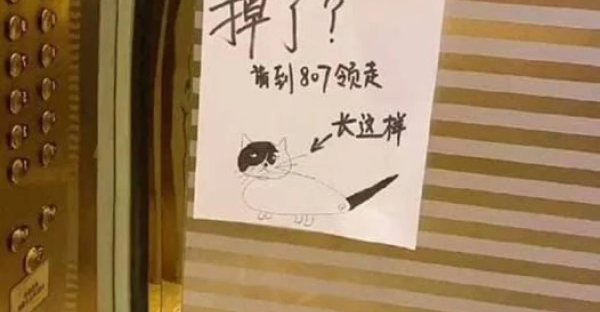 掉了？
请到807领走
长这样